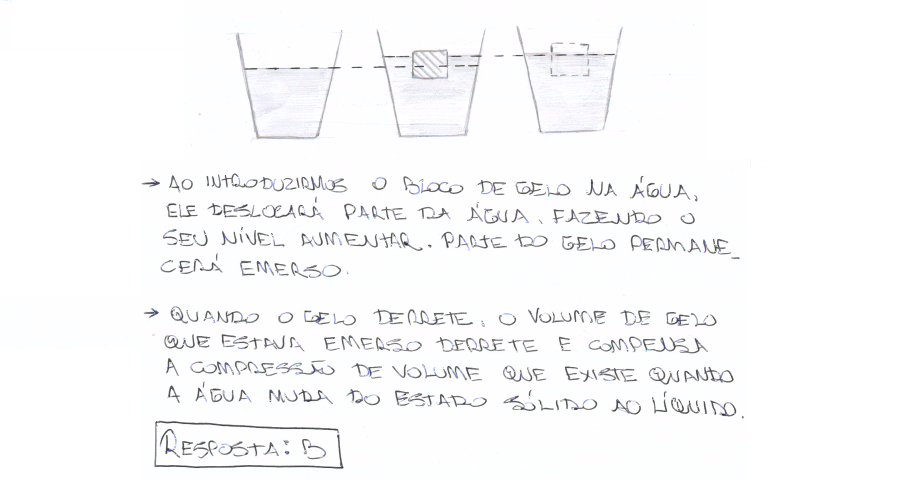 → AO INTRODUZIRMOS O BLOCO DE GELO NA ÁGUA,
ELE DESLOCARÁ PARTE DA ÁGUA, FAZENDO O
SEU NÍVEL AUMENTAR. PARTE DO GELO PERMANE_
CERÁ EMERSO.
→ QUANDO O GELO DERRETE, O VOLUME DE GELO
QUE ESTAVA EMERSO DERRETE E COMPENSA
A COMPRESSÃO DE VOLUME QUE EXISTE QUANDO
A ÁGUA MUDA DO ESTADO SÓLIDO AO LÍQUIDO.
RESPOSTA: B